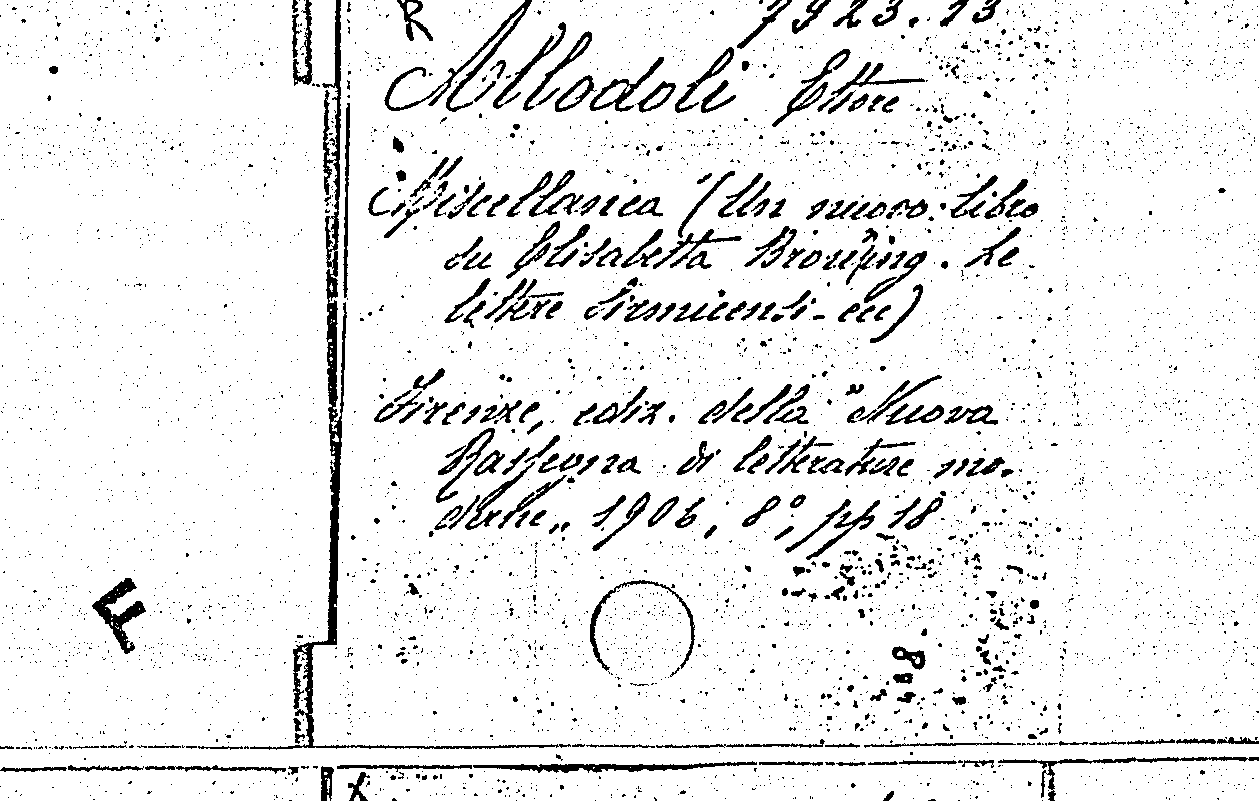 R 7923.13
Allodoli Ettore
Miscellanea (Un nuovo libro
su Elisabetta Browning. Le
lettere Sirmicensi - ecc)
Firenze, ediz. della "Nuova
Rassegna di letterature mo-
derne„ 1906, 8°, pp 18
F
X